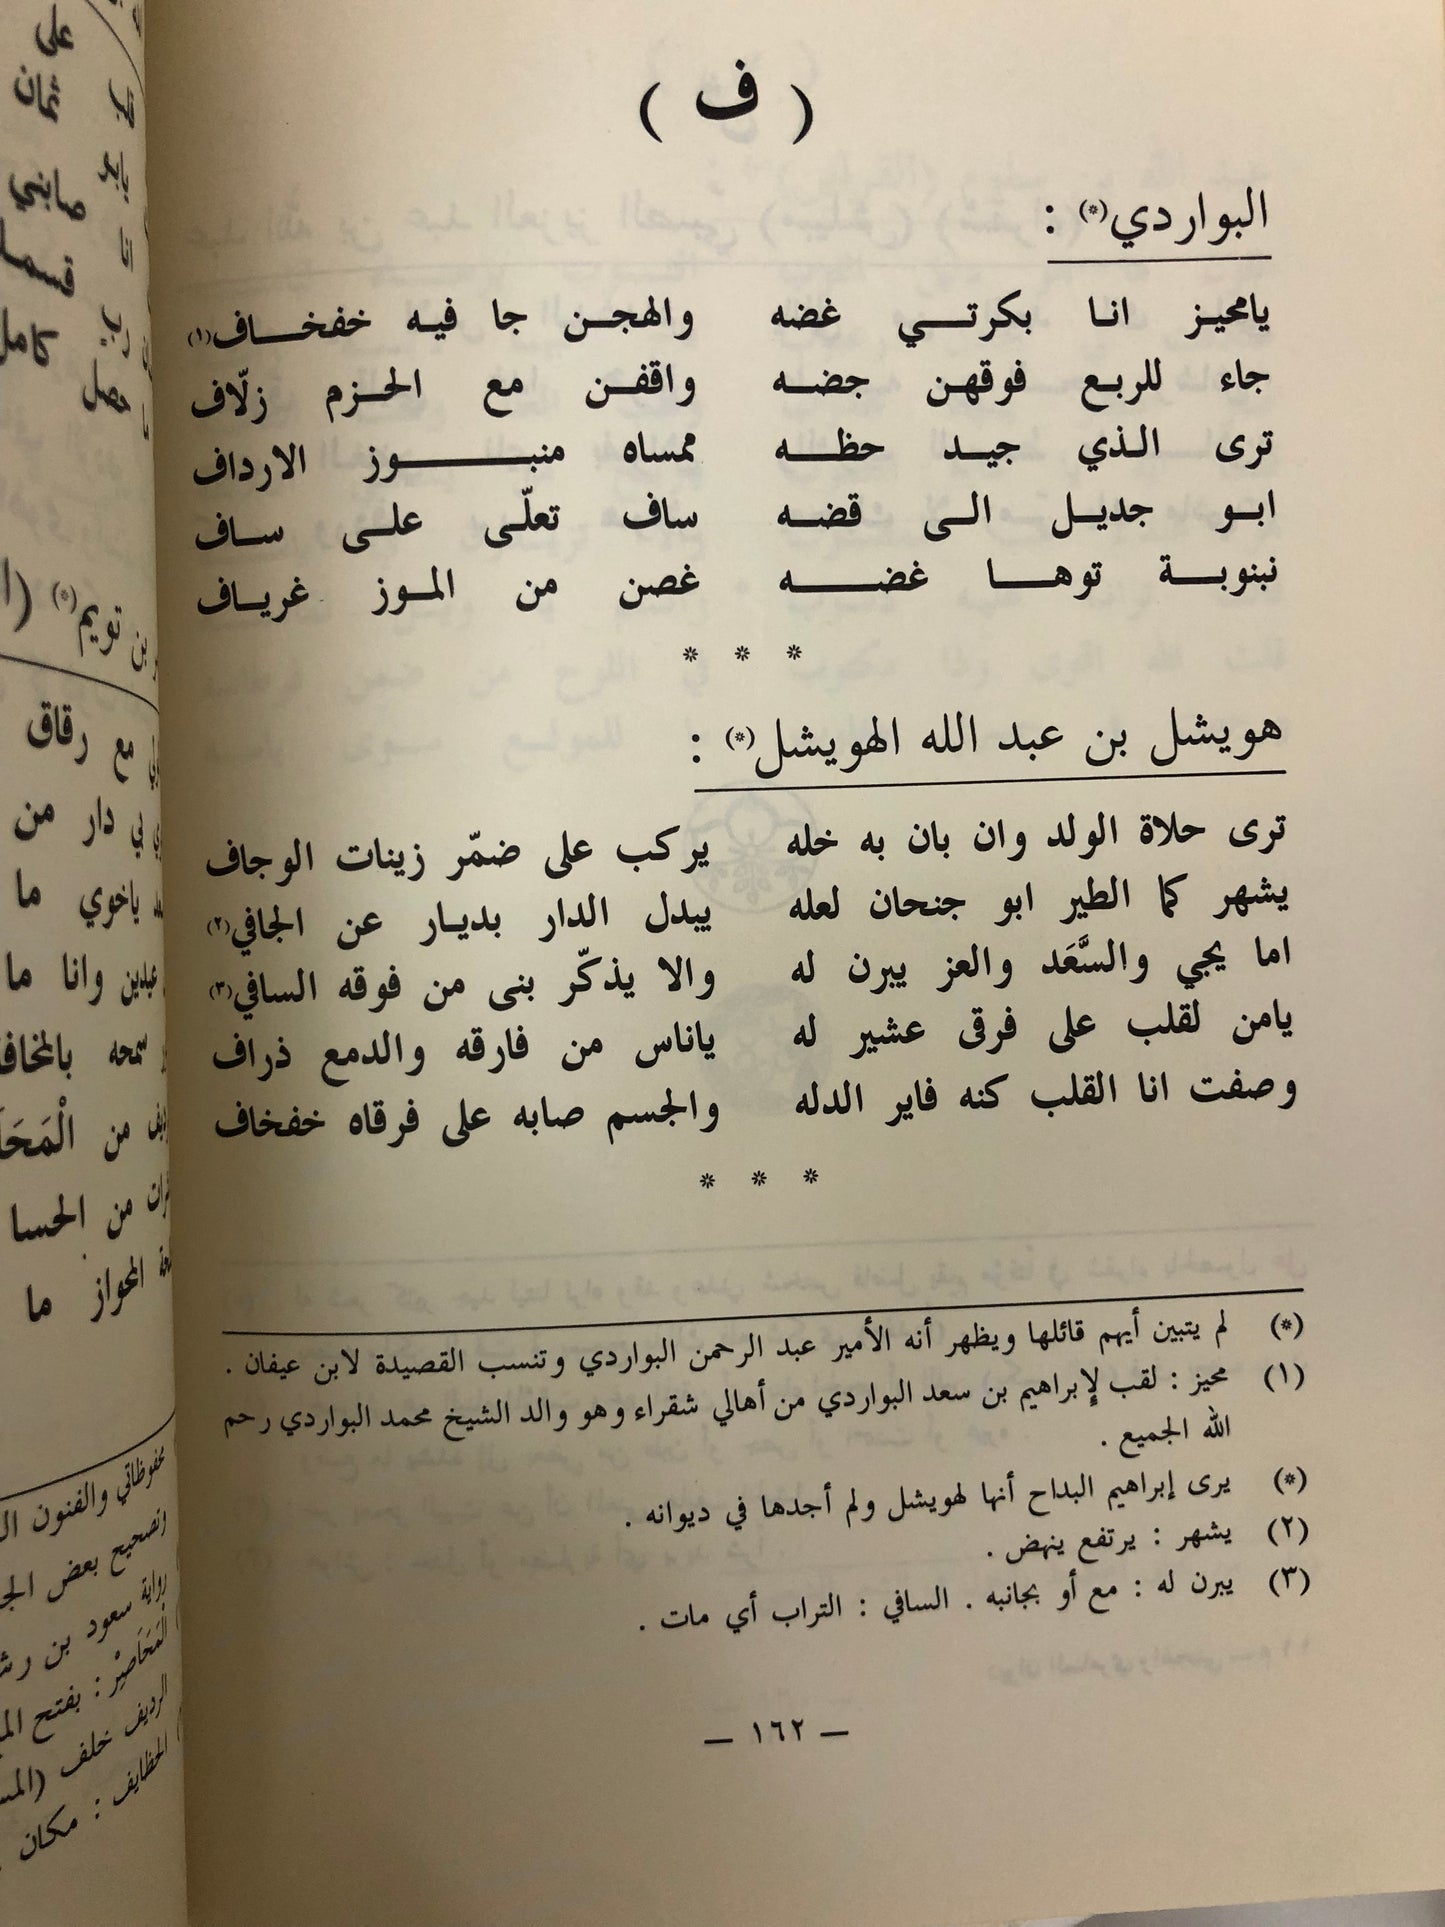 ( ف )
البواردي(*) :
يامحيز انا بكرتي غضه والهجن جا فيه خفخاف(١)
جاء للربع فوقهن جضه واقفن مع الحزم زلّاف
ترى الذي جيد حظه ممساه منبوز الارداف
ابو جديل الى قضه ساف تعلّى على ساف
نبنوبة توها غضه غصن من الموز غرياف
* * *
هويشل بن عبد الله الهويشل(*) :
ترى حلاة الولد وان بان به خله يركب على ضمّر زينات الوجاف
يشهر كما الطير ابو جنحان لعله يبدل الدار بديار عن الجافي(٢)
اما يجي والسَّعَد والعز يبرن له والا يذكّر بنى من فوقه السافي(٣)
يامن لقلب على فرقى عشير له ياناس من فارقه والدمع ذراف
وصفت انا القلب كنه فاير الدله والجسم صابه على فرقاه خفخاف
* * *
(*) لم يتبين أيهم قائلها ويظهر أنه الأمير عبد الرحمن البواردي وتنسب القصيدة لابن عيفان .
(١) محيز : لقب لإبراهيم بن سعد البواردي من أهالي شقراء وهو والد الشيخ محمد البواردي رحم
الله الجميع .
(*) يرى إبراهيم البداح أنها لهويشل ولم أجدها في ديوانه .
(٢) يشهر : يرتفع ينهض .
(٣) يبرن له : مع أو بجانبه . السافي : التراب أي مات .
— ١٦٢ —
على
ثمان
كامل
حصل
بن تويم(*)
مع رقاق
بي دار من
ياخوي ما
عبدين وانا ما
سمحه
من
من الحسا
المحواز ما
محفوظاتي والفنون
وتصحيح بعض
رواية سعود بن
المَحَاصِيْر : بفتح
الرديف خلف
الحظايف : مكان